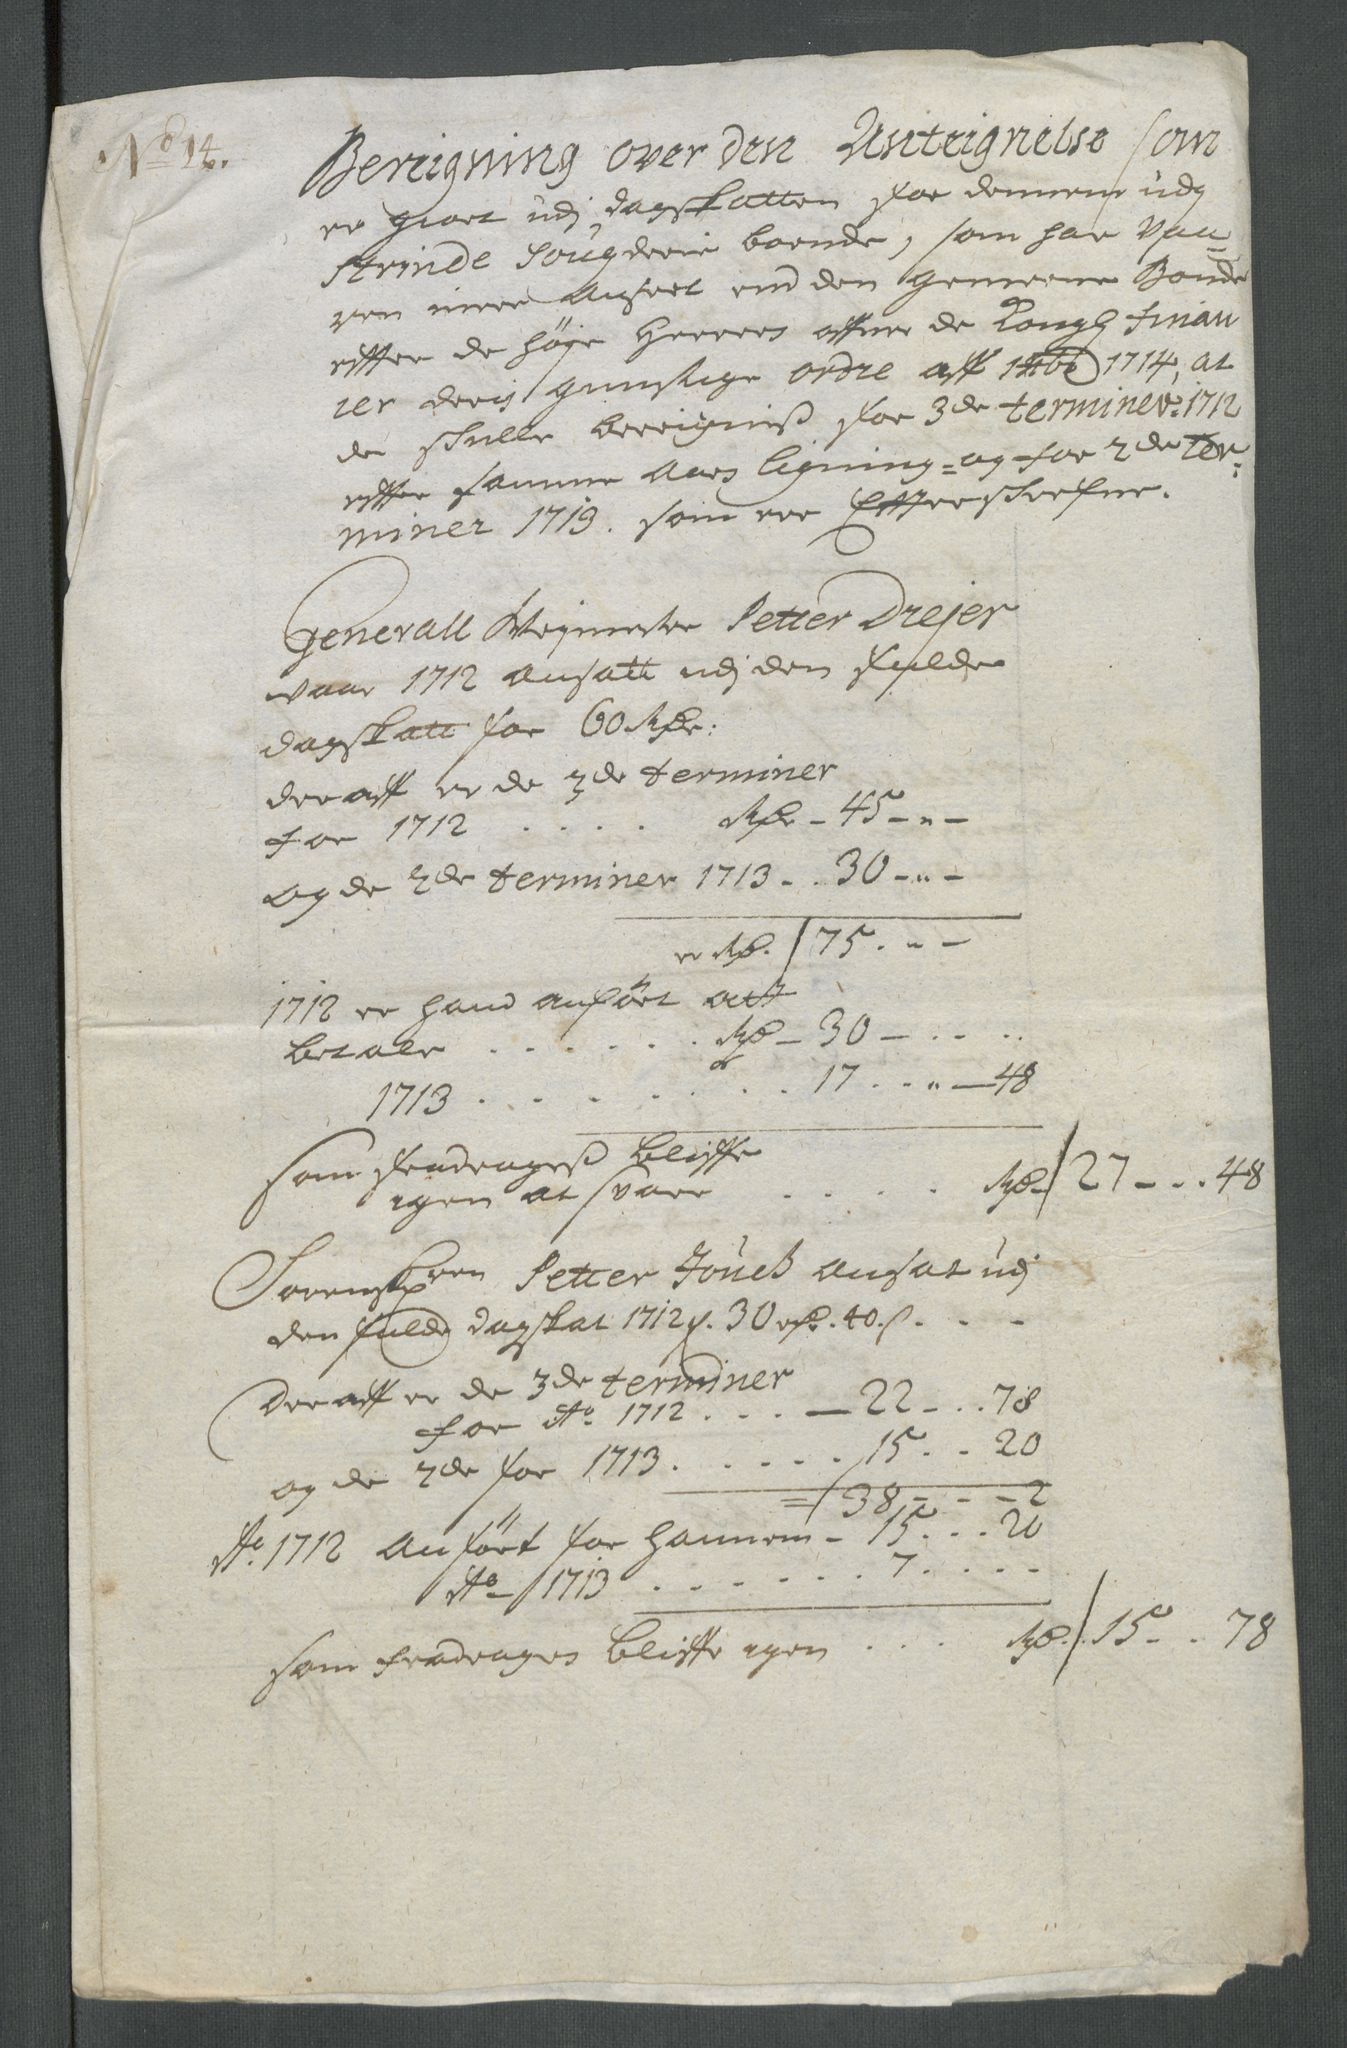 No 14.
Bereigning over den Anteignelse som
er giort udj dagskatten for dennem udj
Strinde fougderie boende, som har vær-
ren meere anseet end den gemeene Bonde
effter de höye Herrers offver de Kongl finan
cer deris gunstige ordre aff 1714, at
de skulle bereignis for 3de terminer 1712
effter samme aars ligning og for 2de ter-
miner 1713. som ere Effterskrefne.
Generall Vejmester Petter Drejer
vaar 1712 ansatt udj den fulde
dagskatt for 60 Rdr:
der aff er de 3de terminer
for 1712 . . . . Rdr - 45 - " -
og de 2de terminer 1713 - . 30 - " -
er Rd. 75 . " -
1712 er hand anfört att
betale . . . . . . Rd - 30 - . . .
1713 . . . . . . . . 17 . . " - 48
som fradrages blifver
igen at svare . . . . Rd 27 - . . 48
Sorenskr Petter Jouch ansat udj
den fulde dagskat 1712 f. 30 rd. 40 s. . . -
der aff er de 3de terminer
for Ao 1712 . . . - 22 - . . 78
og de 2de for 1713 . . . . . 15 . . 20
= 38 - - - 2
Ao 1712 anfört for hannem - 15 . . . 20
Ao 1713 . . . . . . . 7 . . . .
som fradrages blifver igen . . . Rd. 15 - . 78